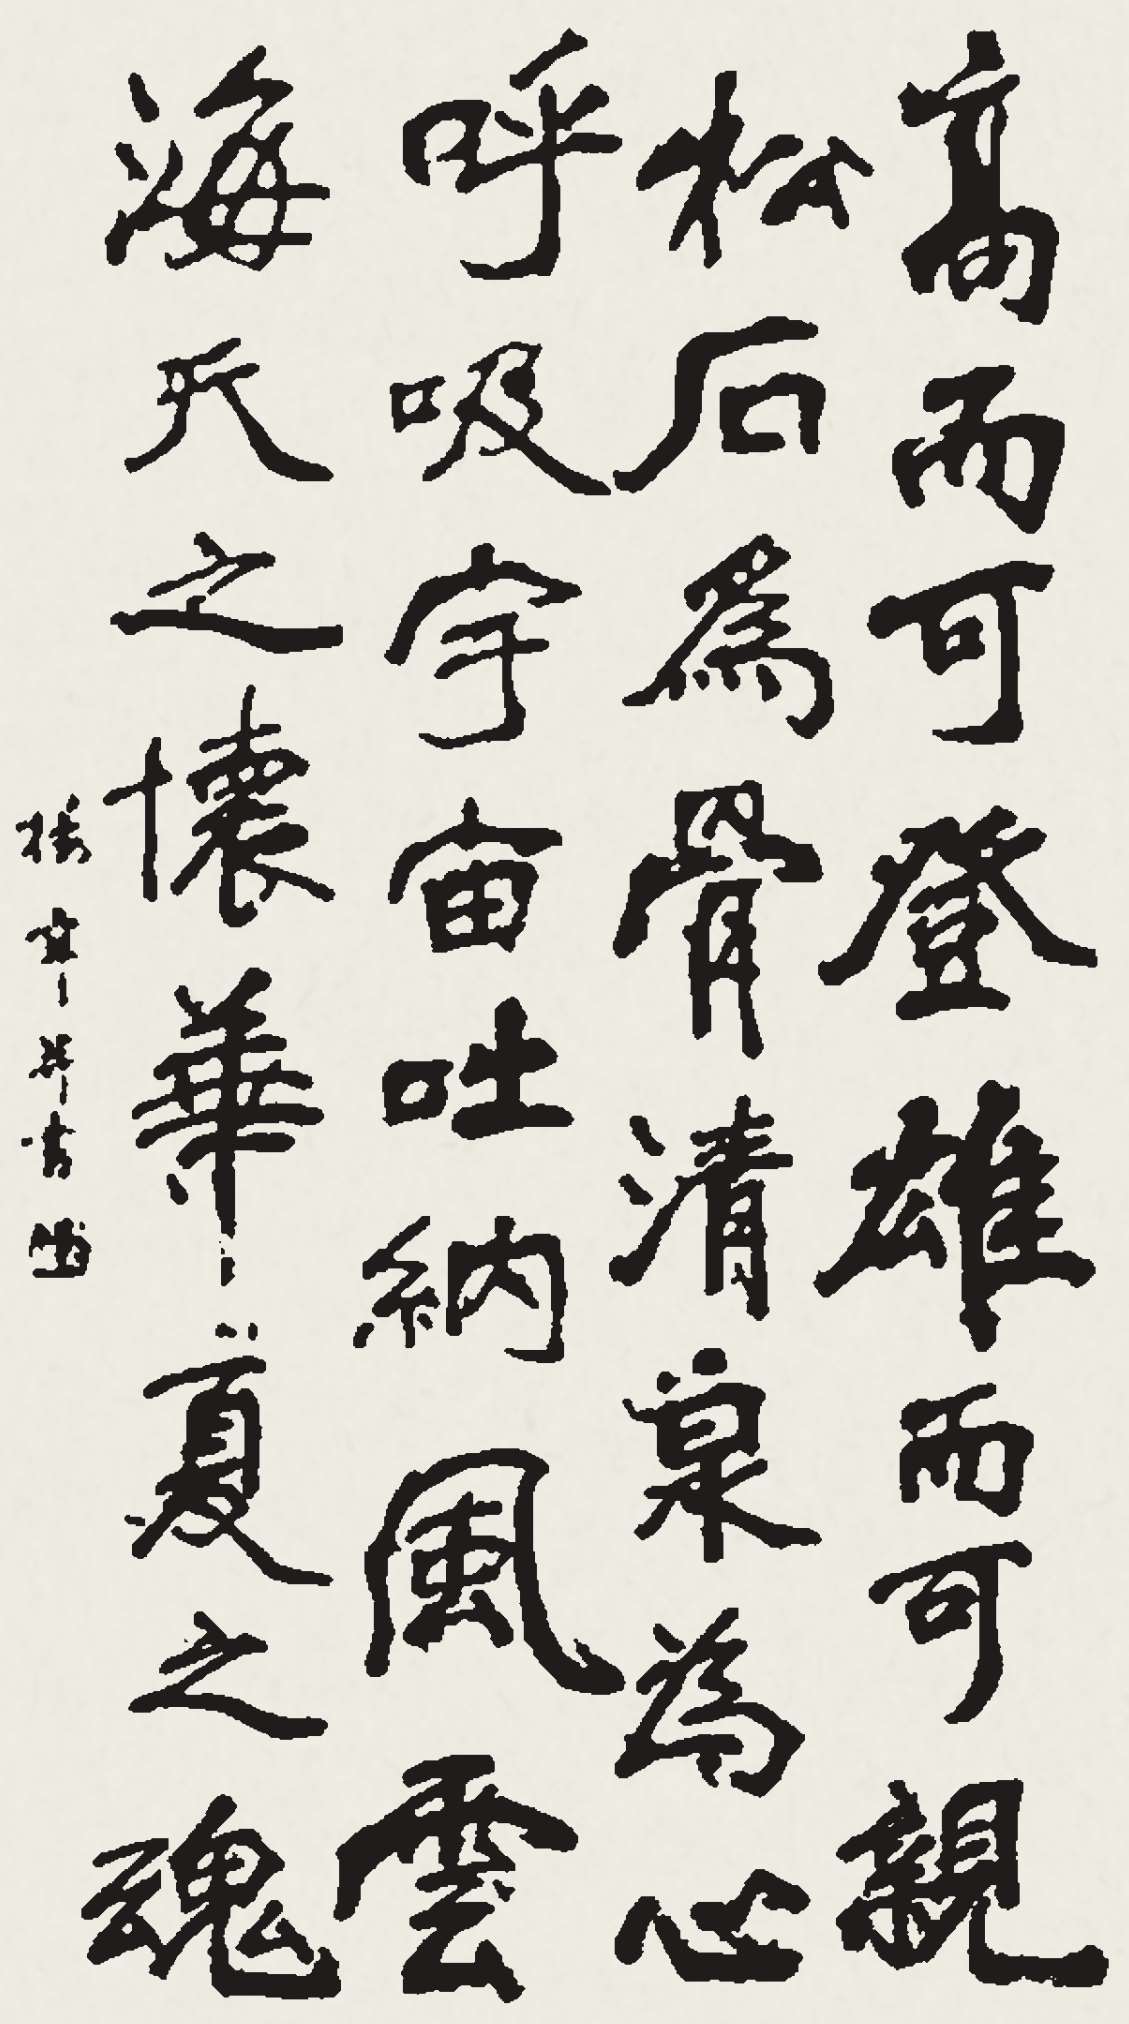 高而可登雄而可親
松石爲骨清泉為心
呼吸宇宙吐納風雲
海天之懷華夏之魂